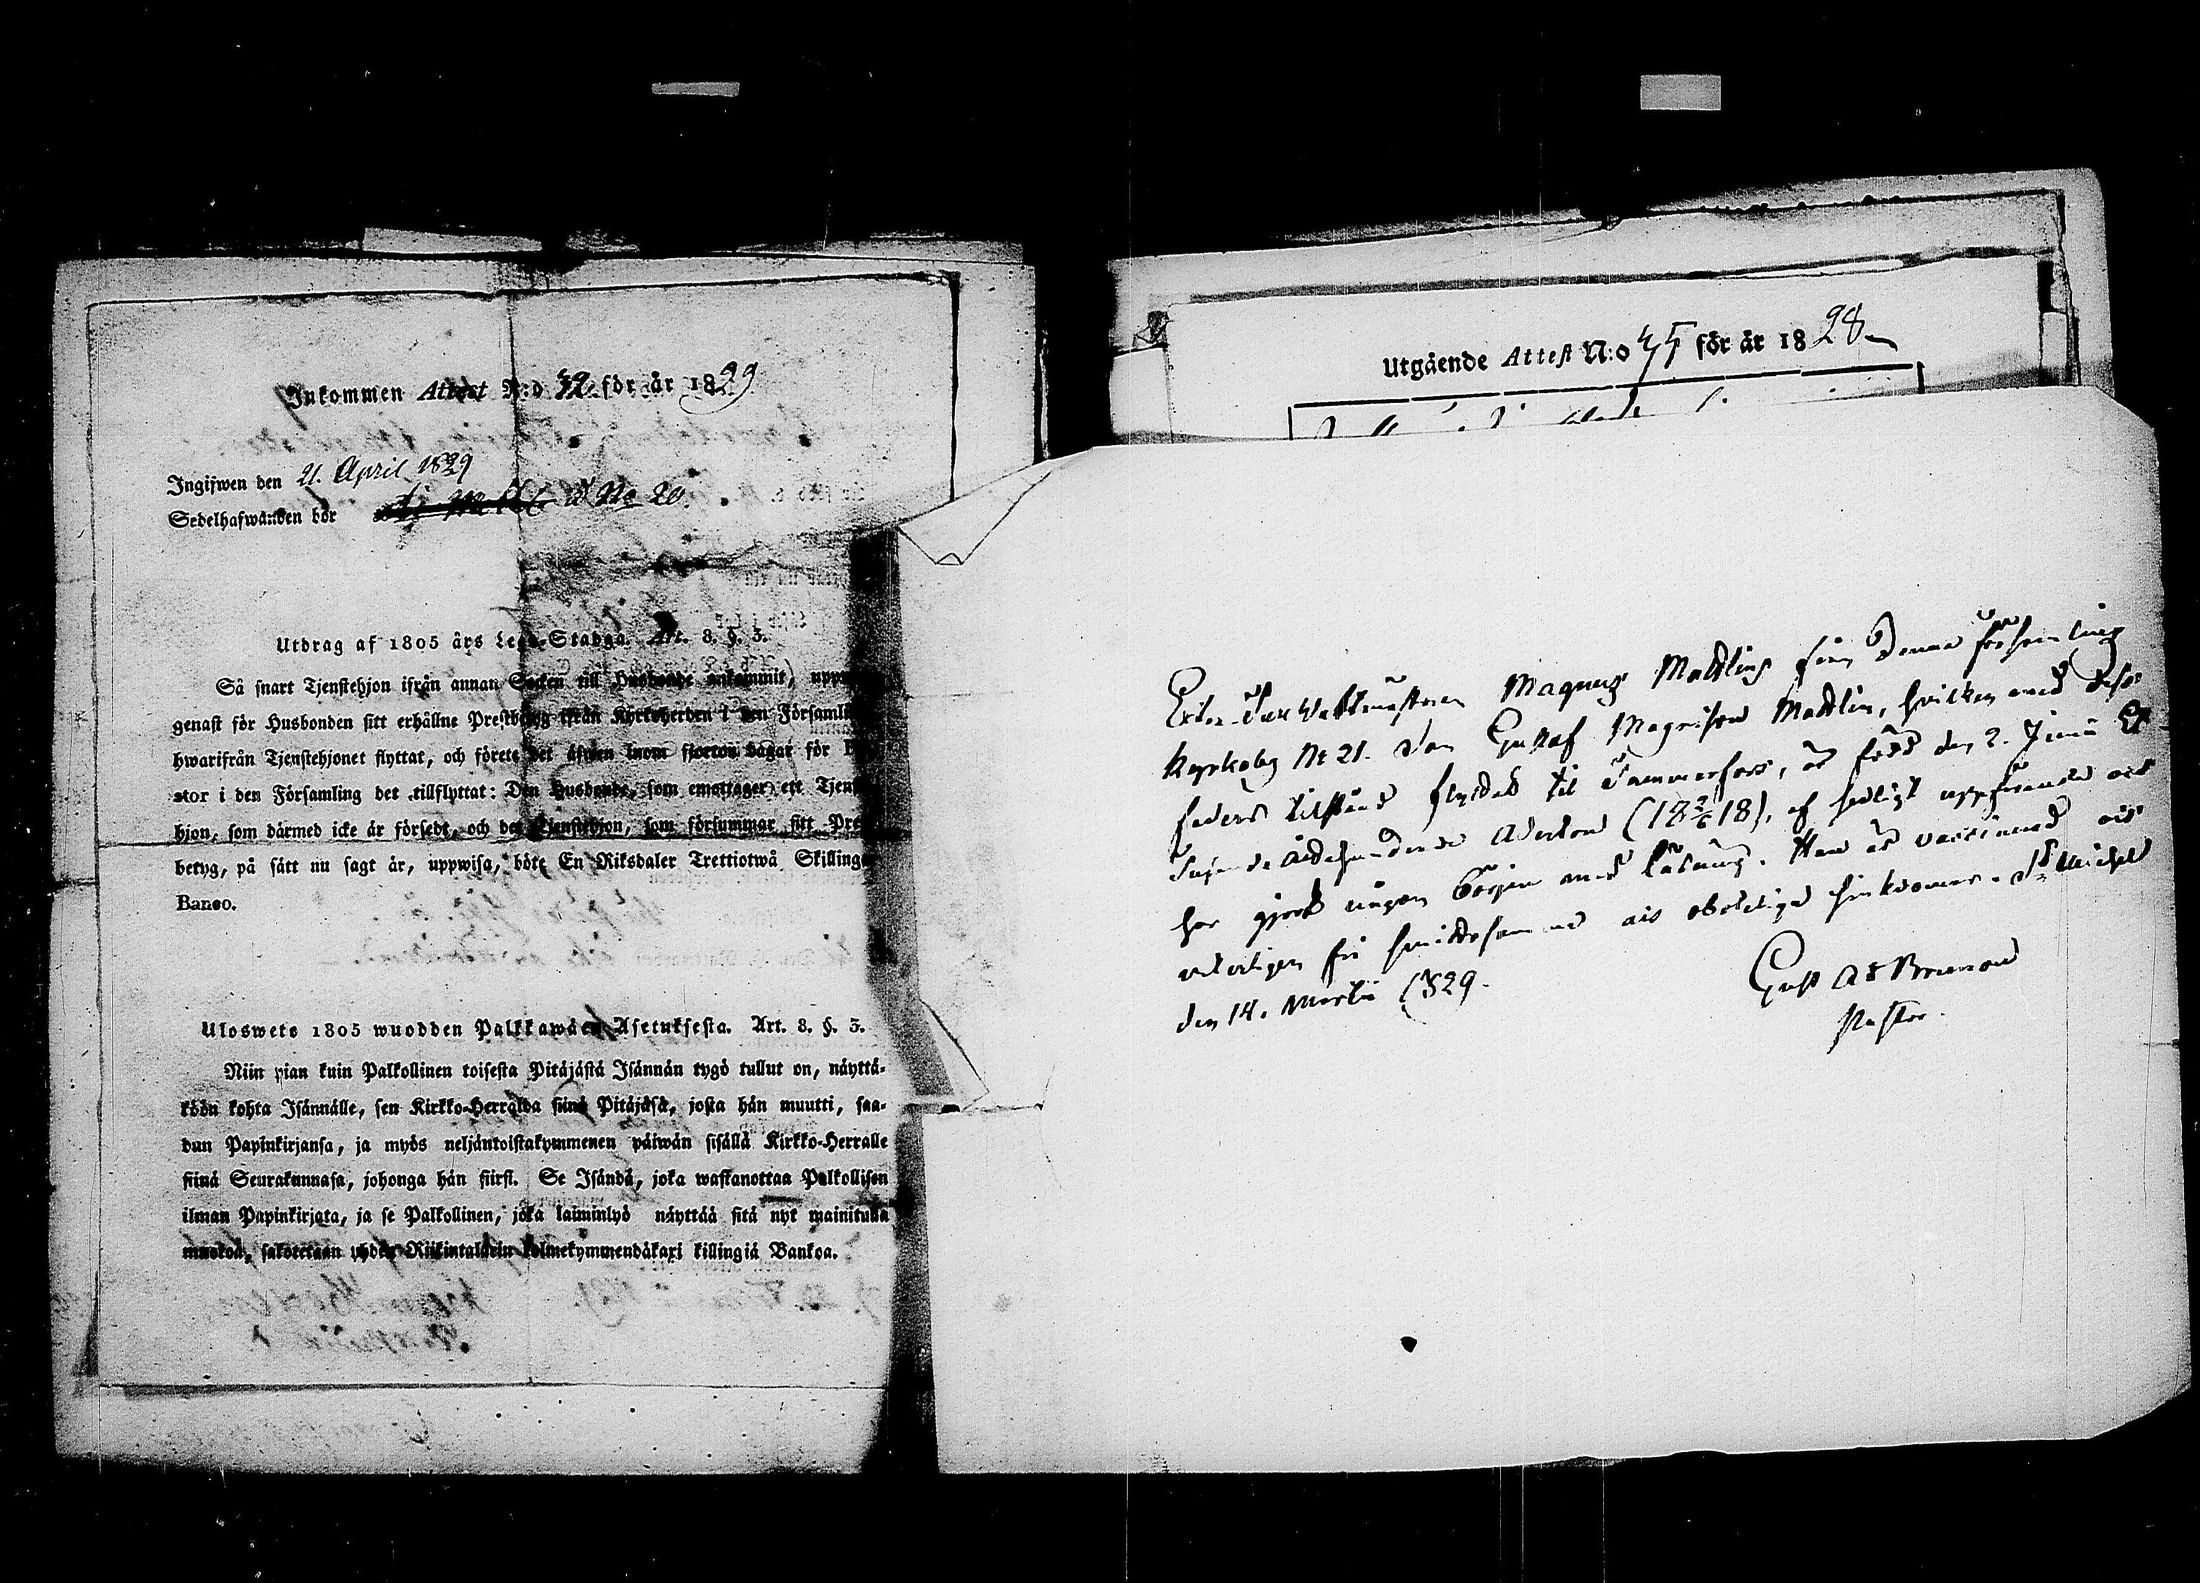 Inkommen Attest N:o 32 för år 1829
Ingifwen den 21. April 1829
Sedelhafwanden bör N:o 20.
Utdrag af 1805 års Lego-Stadga. Art. 8. §. 3.
Så snart Tjenstehjon ifrån annan Socken till Husbonde ankommit,
genast för Husbonden sitt erhållne Prestbetyg ifrån Kyrkoherden i den
hwarifrån Tjenstehjonet flyttat, och förete det äfwen inom fjorton dagar för
stor i den Församling det tillflyttat: Den Husbonde, som emottager ett
hjon, som därmed icke är försedt, och det Tjenstehjon, som försummar sitt
betyg, på sätt nu sagt är, uppwisa, böte En Riksdaler Trettiotwå Skillingar
Banco.
Uloswete 1805 wuodden Palkkawäen Asetuksesta. Art. 8. §. 3.
Niin pian kuin Palkollinen toisesta Pitäjästä Isännän tygö tullut on, näyttä-
köön kohta Isännälle, sen Kirkko-Herralda siinä Pitäjäsä, josta hän muutti, saa-
dun Papinkirjansa, ja myös neljäntoistakymmenen päiwän sisällä Kirkko-Herralle
siinä Seurakunnasa, johonga hän siirsi. Se Isändä, joka wastanottaa Palkollisen
ilman Papinkirjata, ja se Palkollinen, joka laiminlyö näyttää sitä nyt mainitulla
muotoa, sakotetaan yhden Riikintalarin kolmekymmendäkaxi killingiä Bankoa.
Utgående Attest N:o 45 för år 1828
Magnus Malling från denna församling
Kyrkoby N:o 21. Son Gustaf Magnison Mallin, hvilken med dess
faders tillstånd flyttat till Tammerfors, är född den 2. Junii Ett
Tusende Ottahundrade Aderton (18 2/6 18), af hedligt uppförande och
har gjort någon början med läsning. Han är vaccinerad och
veterligen fri ifrån S:t Michel
den 14. Martii 1829.
Gust Ad Brunou
Pastor.